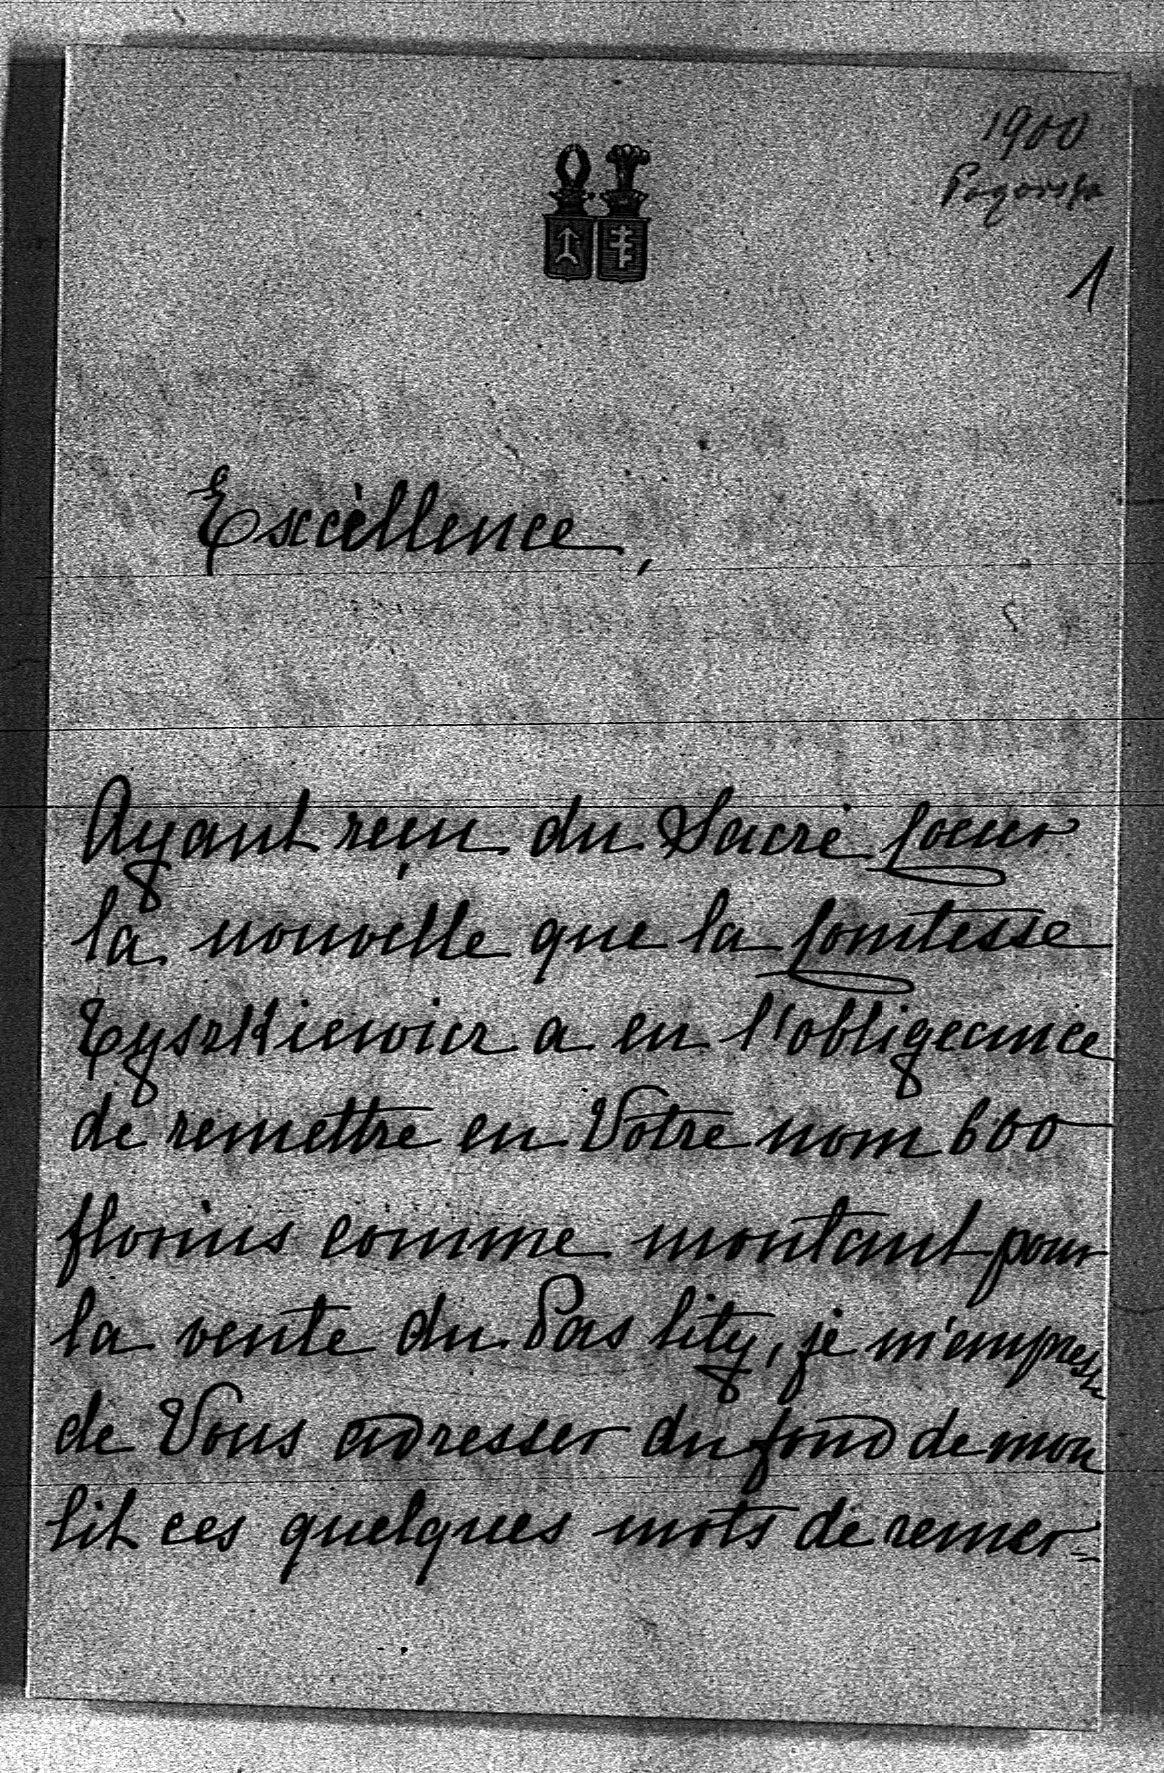 1900
1
Excèllence,
Ayant reçu du Sacré Coeur
la nouvelle que la Comtesse
Tyszkiewicz a eu l'obligeance
de remettre en Votre nom 600
florins comme montant pour
la vente du Pas lity, je m'empresse
de Vous adresser du fond de mon
lit ces quelques mots de remer=